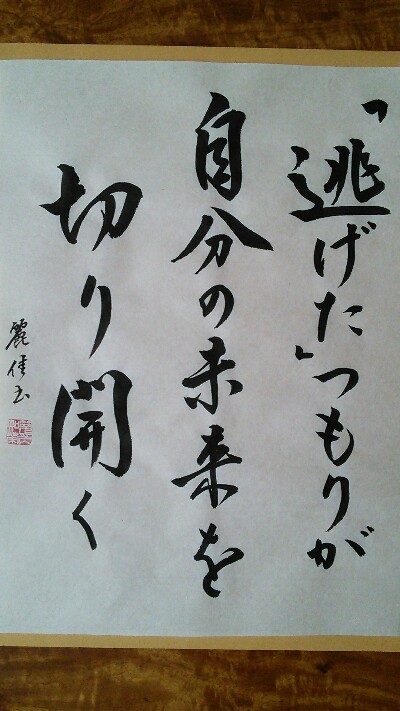 「逃げた」つもりが
自分の未来を
切り開く
麗佳书